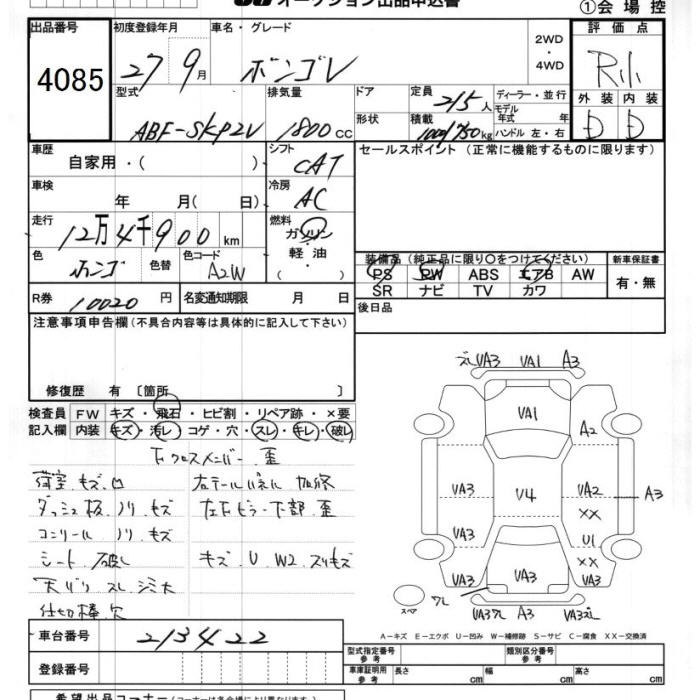 オークション出品申込書
①会場控
出品番号
4085
初度登録年月
27 9月
車名・グレード
ボンゴV
2WD
・
4WD
評価点
外装 内装
D D
型式
ABF-SKP2V
排気量
1800cc
ドア
形状
定員
2/5人
積載
1000/750kg
ディーラー・並行
モデル
年式 年
ハンドル 左・右
車歴
自家用・( )
シフト
CAT
セールスポイント (正常に機能するものに限ります)
車検
年 月( 日)
冷房
AC
走行
12万4千900km
燃料
ガソリン
・
軽油
・( )
色
ホンゴ
色替
色コード
A2W
装備品 (純正品に限り○をつけてください)
PS PW ABS エアB AW
SR ナビ TV カワ
新車保証書
有・無
R券
10020円
名変通知期限 月 日
後日品
注意事項申告欄(不具合内容等は具体的に記入して下さい)
修復歴 有〔箇所 〕
検査員
記入欄
FW キズ・飛石・ヒビ割・リペア跡・×要
内装 キズ・汚レ・コゲ・穴・スレ・キレ・破レ
下クロスメンバー 歪
荷室 キズ 凹
右テールパネル 加修
ダッシュ板 ノリ キズ
左下ピラー下部 歪
コンソール ノリ キズ
シート 破レ
キズ U W2 スリキズ
仕切棒 欠
VA3 VA1 A3
VA1
A2
VA3 V4 VA2 A3
XX
VA3 U1
XX
VA3 VA3 VA3
スペア
A3
A-キズ E-エクボ U-凹み W-補修跡 S-サビ C-腐食 XX-交換済
車台番号
213422
登録番号
型式指定番号
参考
類別区分番号
参考
車庫証明用
参考
長さ cm 幅 cm 高さ cm
希望出品コーナー